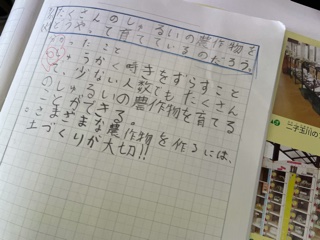 たくさんのしゅるいの農作物を
どうやって育てているのだろう。
しゅうかく時きをずらすこと
で、少ない人数でもたくさん
のしゅるいの農作物を育てる
ことができる。
さまざまな農作物を作るには、
土づくりが大切!!
二子玉川の